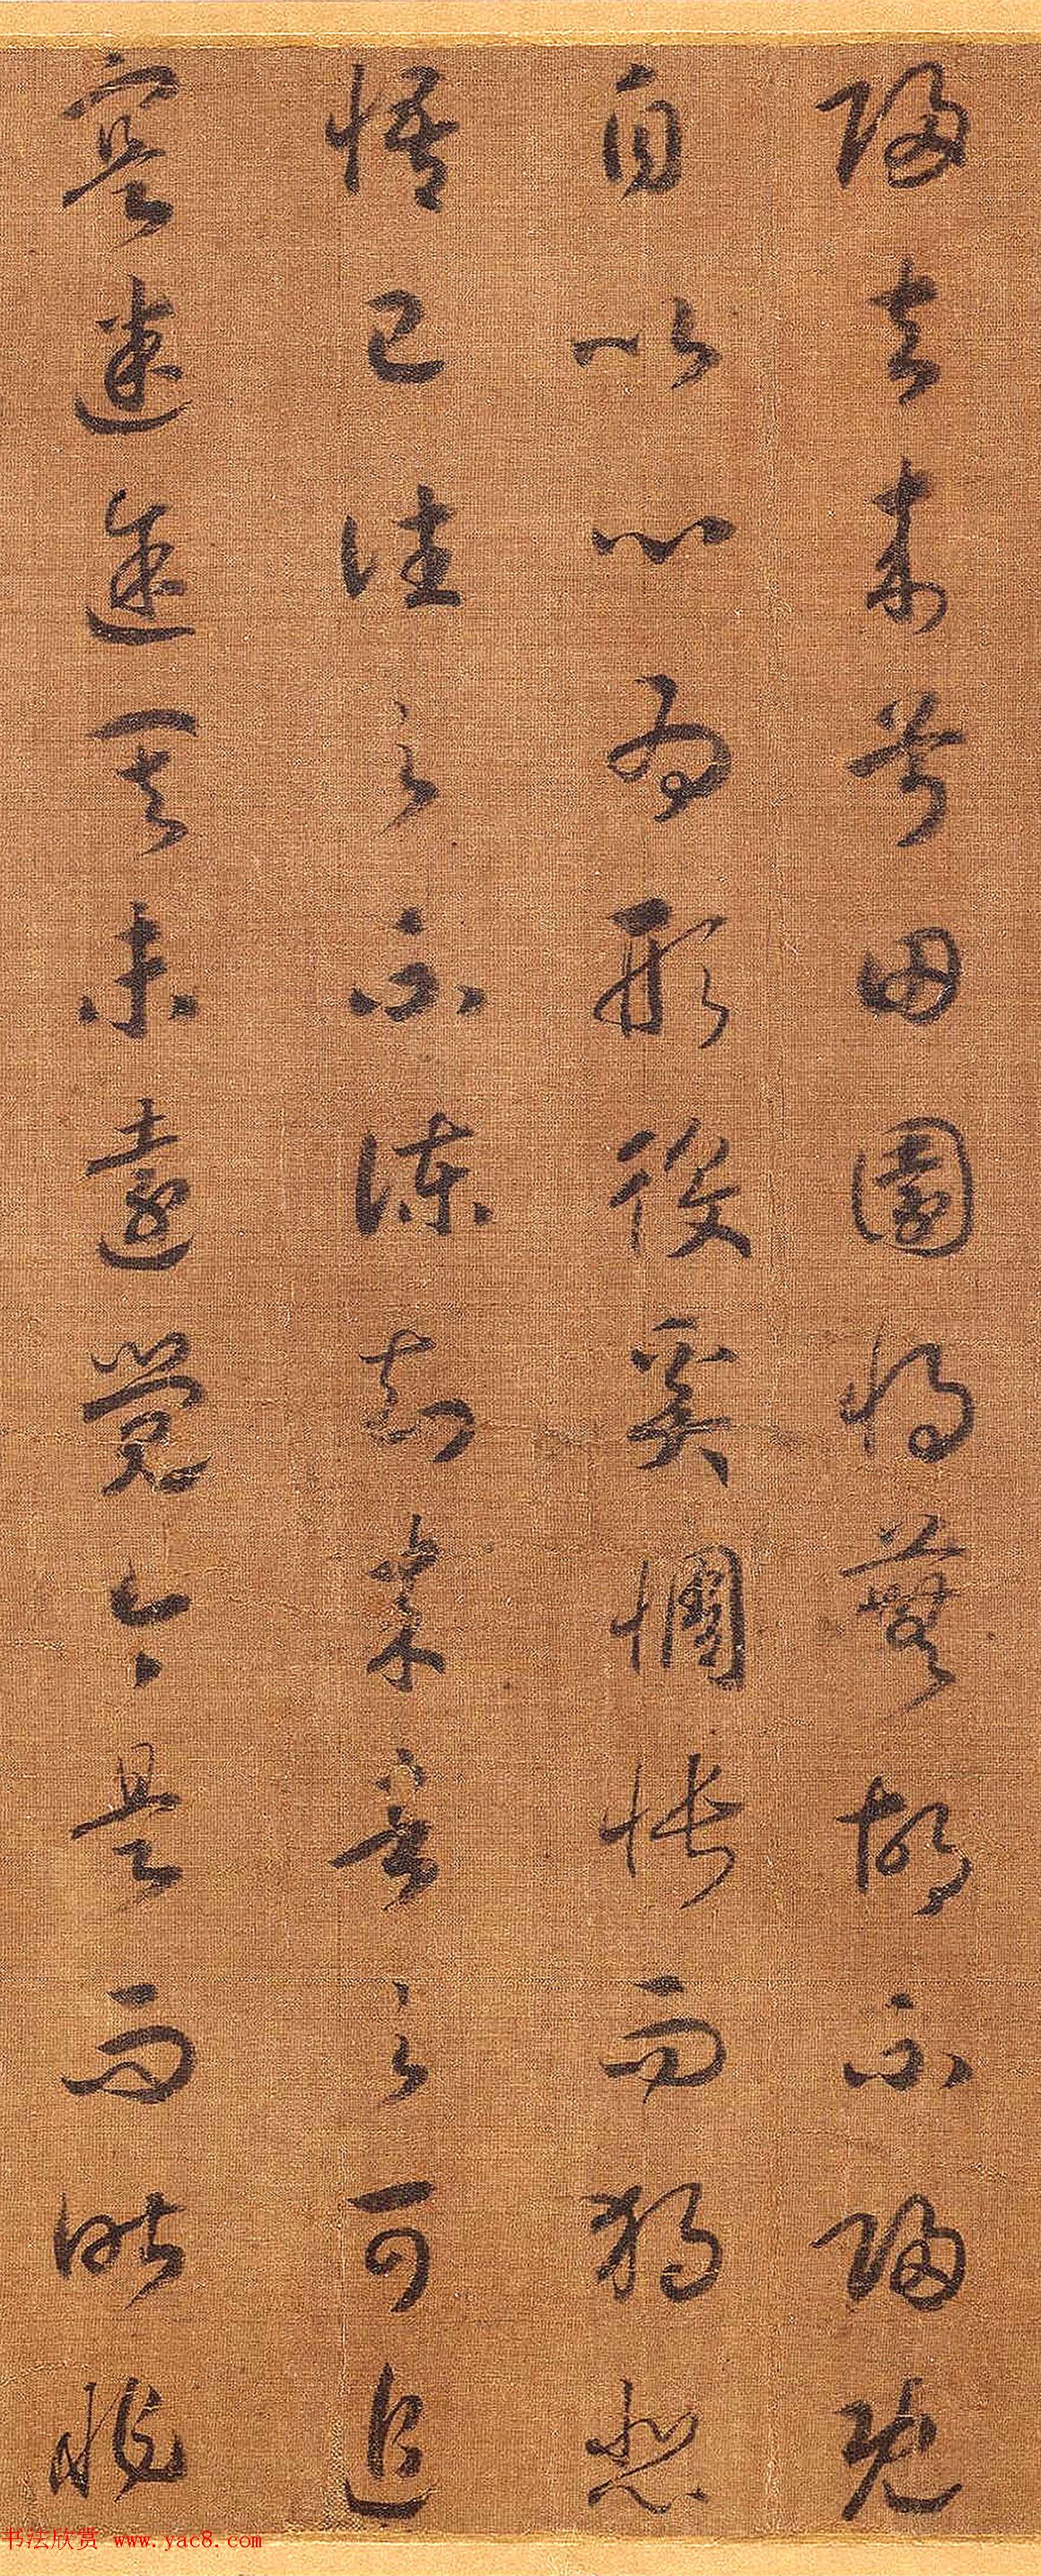 歸去來兮田園將蕪胡不歸既
自以心為形役奚惆悵而獨悲
悟已往之不諫知來者之可追
寔迷途其未遠覺今是而昨非
书法欣赏 www.yac8.com